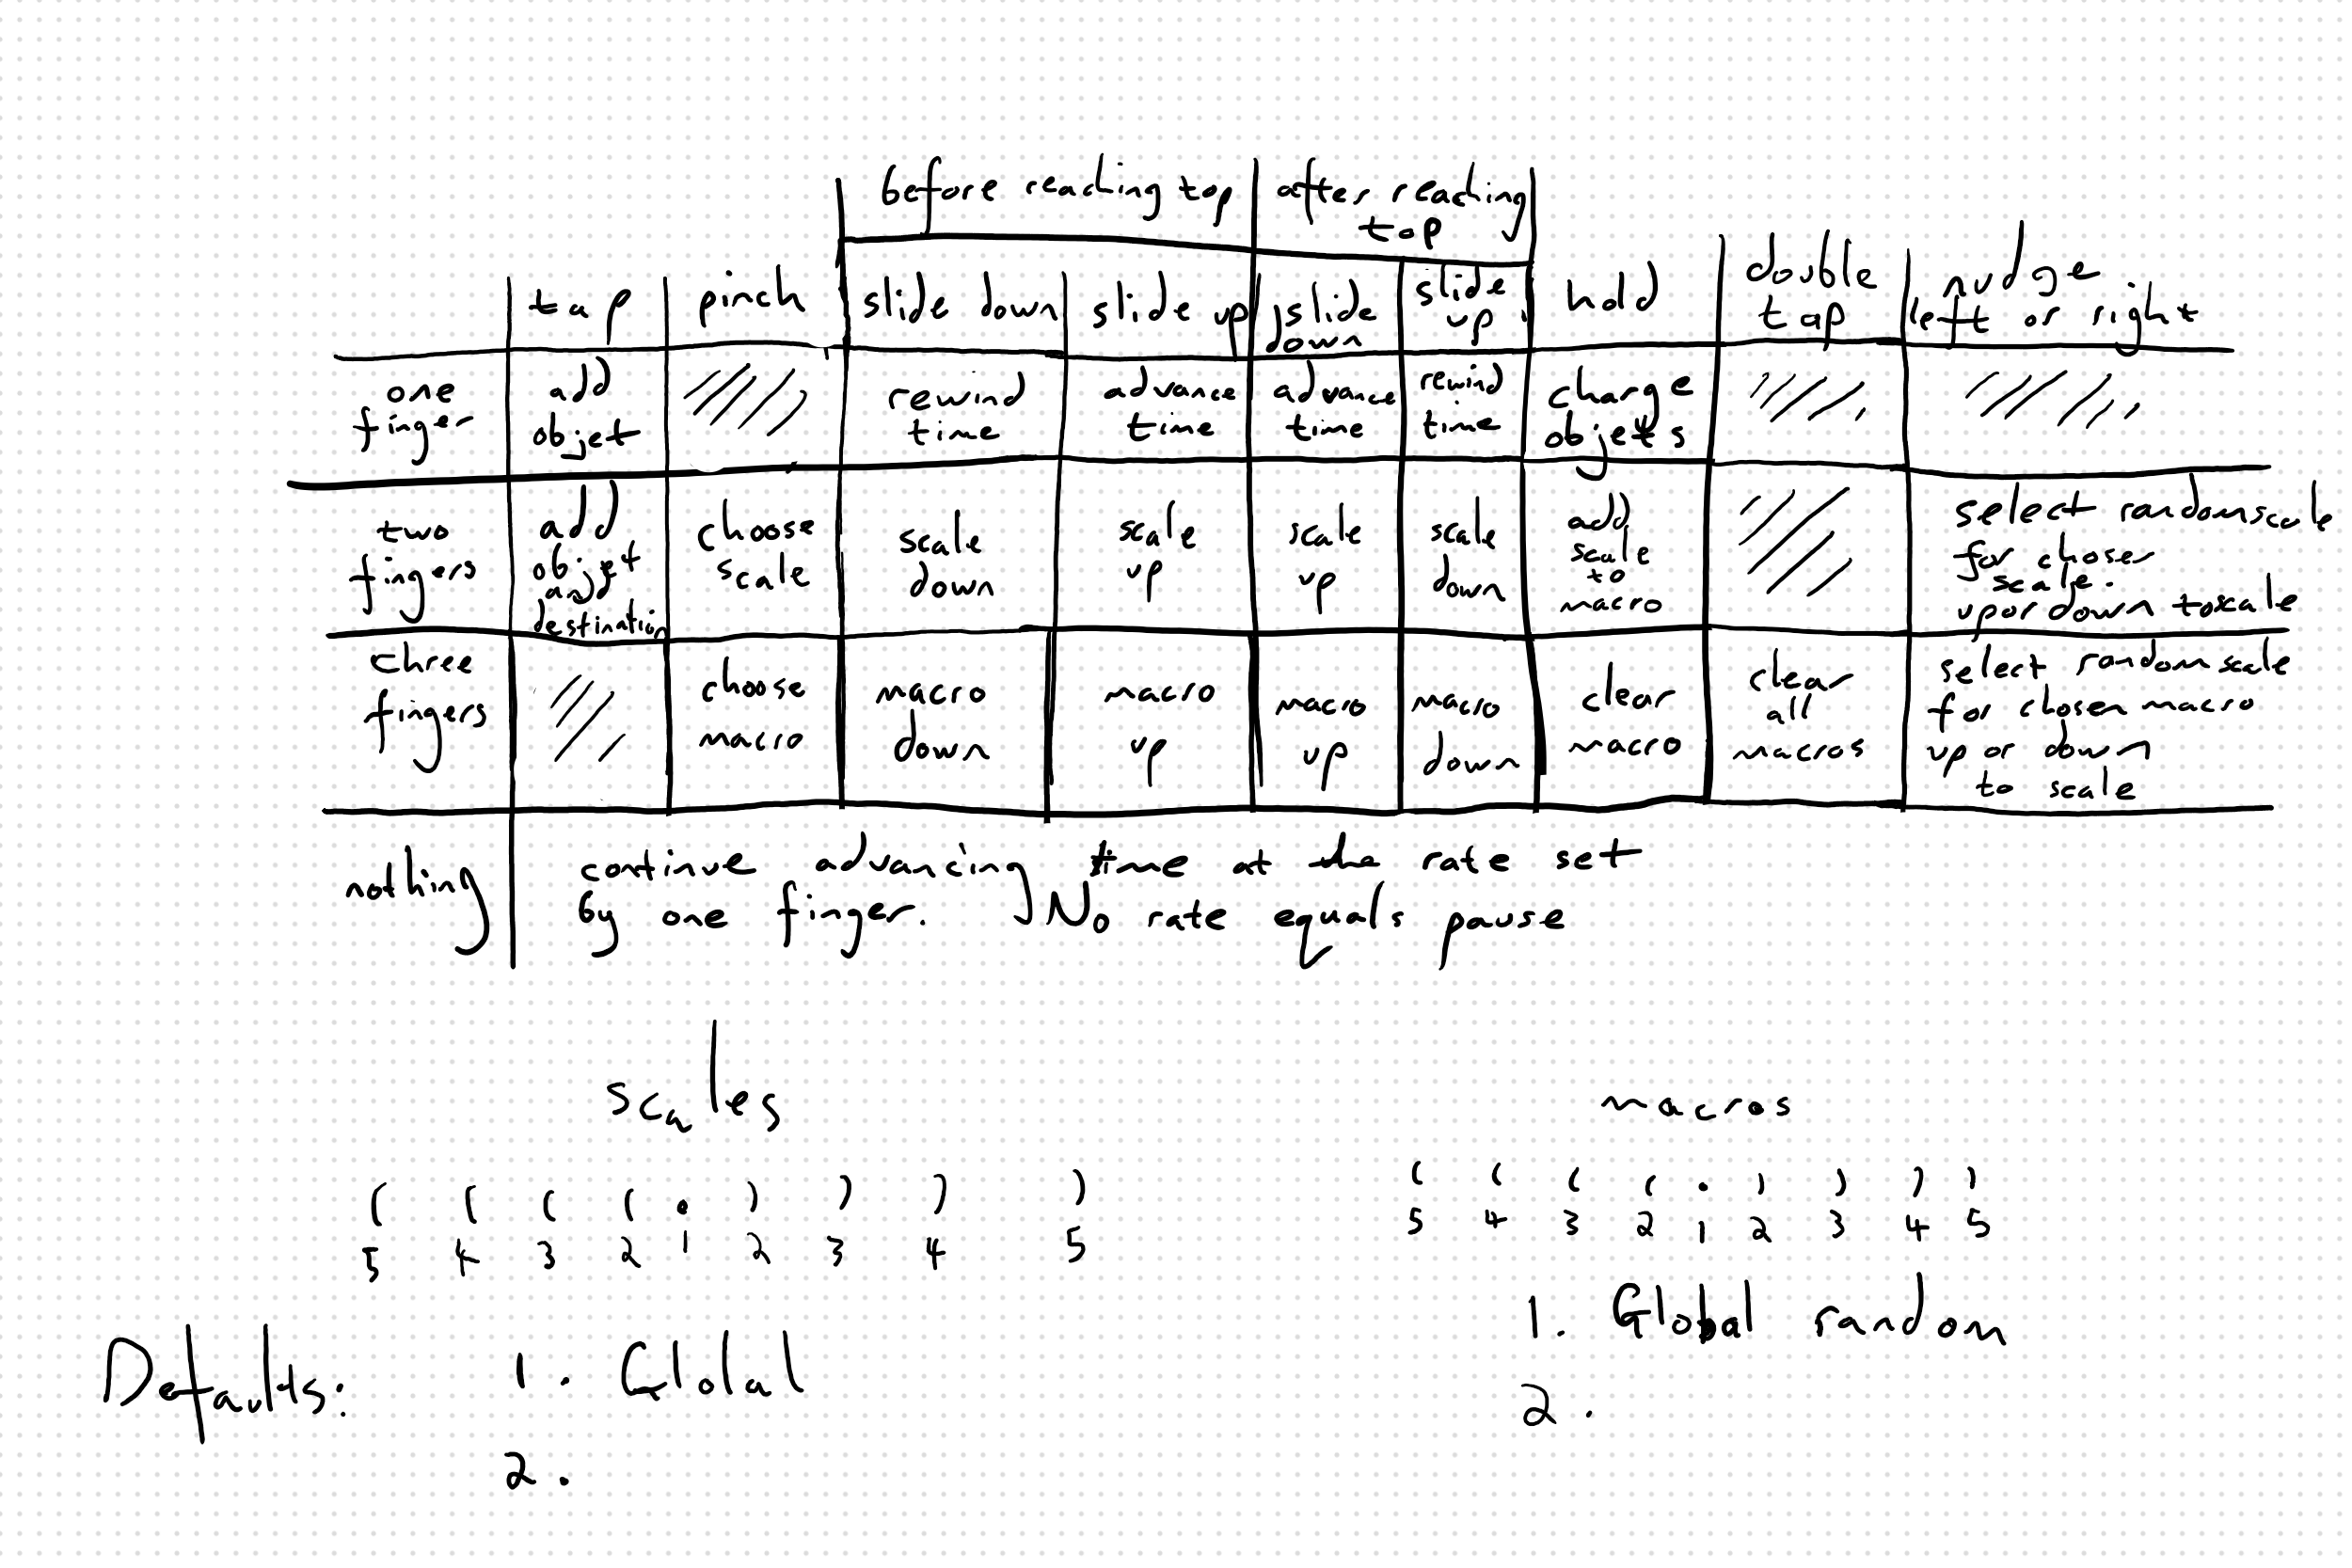 before reaching top after reaching
top
tap pinch slide down slide up slide down slide up hold double tap nudge left or right
one finger add objet rewind time advance time advance time rewind time charge objets
two fingers add objet and destination choose scale scale down scale up scale up scale down add scale to macro select random scale for chosen scale. up or down to scale
three fingers choose macro macro down macro up macro up macro down clear macro clear all macros select random scale for chosen macro up or down to scale
nothing continue advancing time at the rate set
by one finger. No rate equals pause
scales macros
( ( ( ( . ) ) ) ) ( ( ( ( . ) ) ) )
5 4 3 2 1 2 3 4 5 5 4 3 2 1 2 3 4 5
Defaults: 1. Global 1. Global random
2. 2.